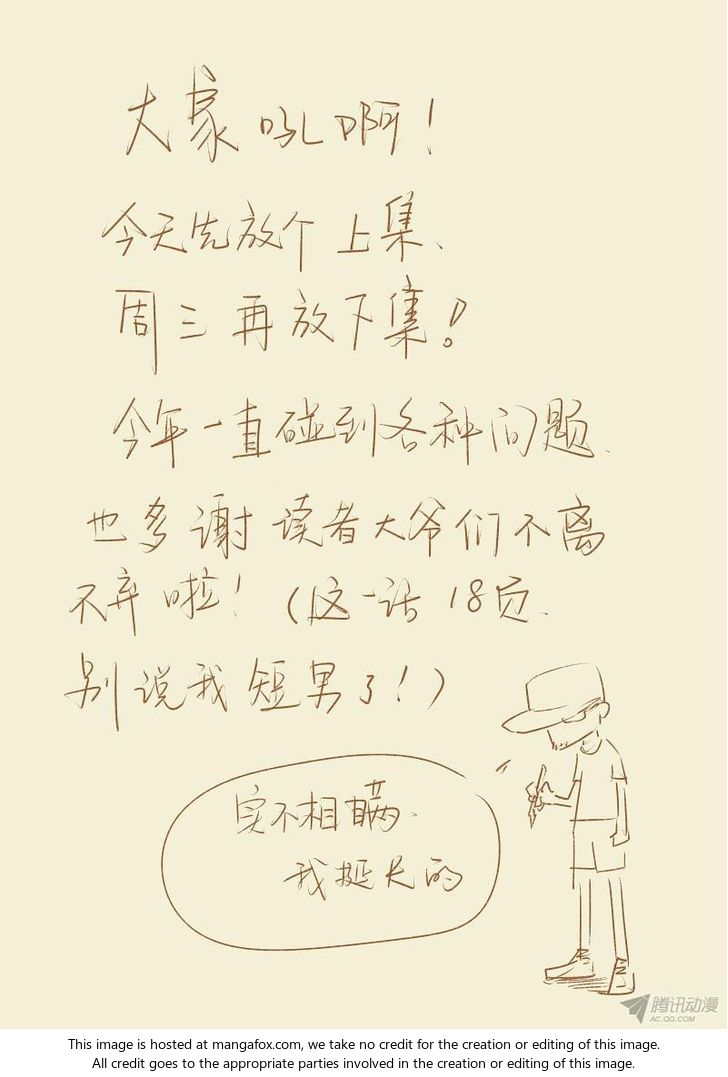 大家吼啊!
今天先放个上集、
周三再放下集!
今年一直碰到各种问题、
也多谢读者大爷们不离
不弃啦!(这一话18页、
别说我短男了!)
实不相瞒、
我挺长的
腾讯动漫
AC.QQ.COM
This image is hosted at mangafox.com, we take no credit for the creation or editing of this image.
All credit goes to the appropriate parties involved in the creation or editing of this image.